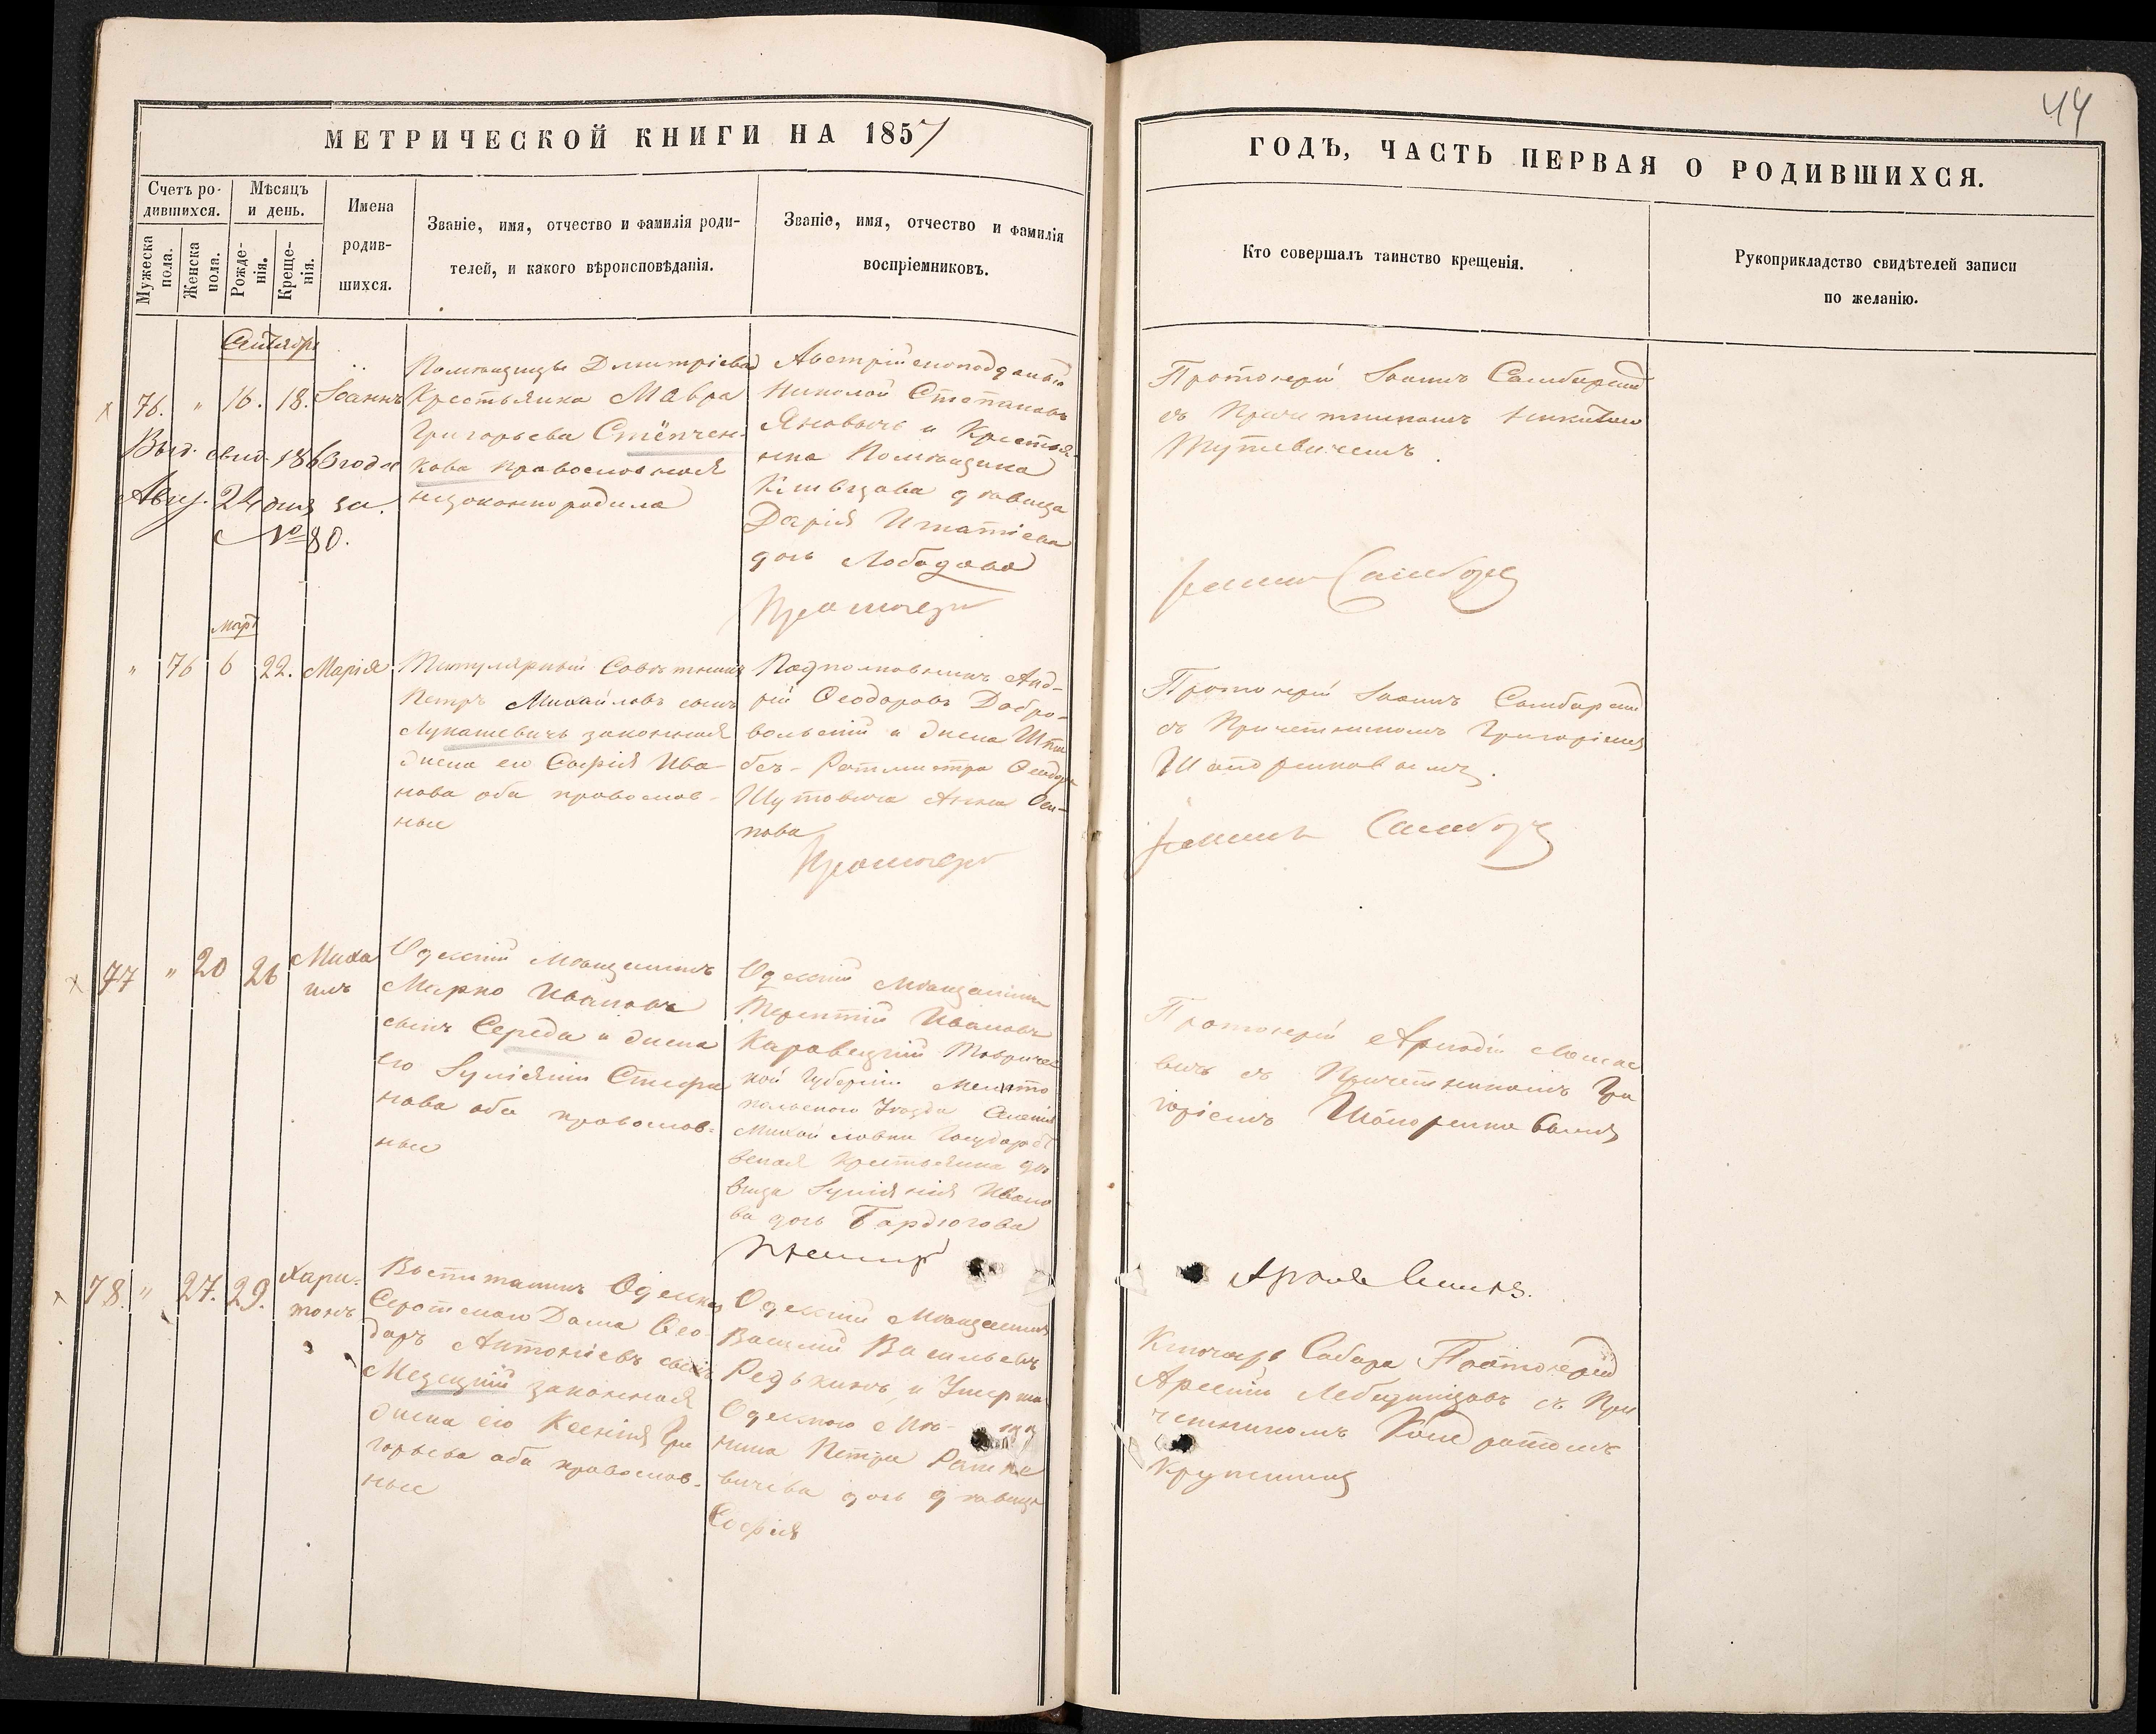 44
МЕТРИЧЕСКОЙ КНИГИ НА 1857
ГОДЪ, ЧАСТЬ ПЕРВАЯ О РОДИВШИХСЯ.
Счетъ ро-
дившихся.
Мужеска
пола.
Женска
пола.
Мѣсяцъ
и день.
Рожде-
нія.
Креще-
нія.
Имена
родив-
шихся.
Званіе, имя, отчество и фамилія роди-
телей, и какого вѣроисповѣданія.
Званіе, имя, отчество и фамилія
воспріемниковъ.
Кто совершалъ таинство крещенія.
Рукоприкладство свидѣтелей записи
по желанію.
Сентябрь
76. " 16. 18. Іоаннъ
Выд. свид. 1866 года
Авг. 24 дня за
№ 80.
Помѣщицы Дмитріевой
Крестьянка Мавра
Григорьева Степчен-
кова православная
незаконно родила
Австрійскоподданый
Николай Степановъ
Яновичъ и Крестья-
нка Помѣщика
дѣвица
Дарія Игнатіева
дочь Лободова
Протоіерей
Протоіерей Іоаннъ
съ Причетникомъ Никитою
Мартъ
" 76 6 22. Марія
Титулярный Совѣтникъ
Петръ Михайловъ сынъ
Лукашевичъ законная
жена его Софія Ива-
нова оба православ-
ные
Подполковникъ Анд-
рій Ѳеодоровъ Добро-
вольскій и жена Шта
бсъ-Ротмистра Ѳеодора
Шутовича Анна Оси-
пова
Протоіерей
Протоіерей Іоаннъ
съ Причетникомъ Григоріемъ
77 " 20 26 Миха
илъ
Одесскій Мѣщанинъ
Марко Ивановъ
сынъ Середа и жена
его Іуліянія Стефа
нова оба православ-
ные
Одесскій Мѣщанинъ
Терентій Ивановъ
Каравецкій Тавричес
кой Губерніи Мелито
польскаго Уѣзда
Михайловки Государст
венная Крестьянка дѣ
вица Іуліянія Ивано
ва дочь
Протоіерей
съ Причетникомъ Гри
горіемъ
78. " 27. 29. Хари-
тонъ
Воспитанникъ Одесскаго
Сиротскаго Дома Ѳео
доръ Антоніевъ сынъ
законная
жена его Ксенія Гри
горьева оба православ-
ные
Одесскій Мѣщанинъ
Василій Васильевъ
Редькинъ и Умершаго
Одесскаго Мѣ-
нина Петра
дочь дѣвица
Софія
Ключарь Собора Протоіерей
Арсеній Лебединцовъ съ При
четникомъ Кондратомъ